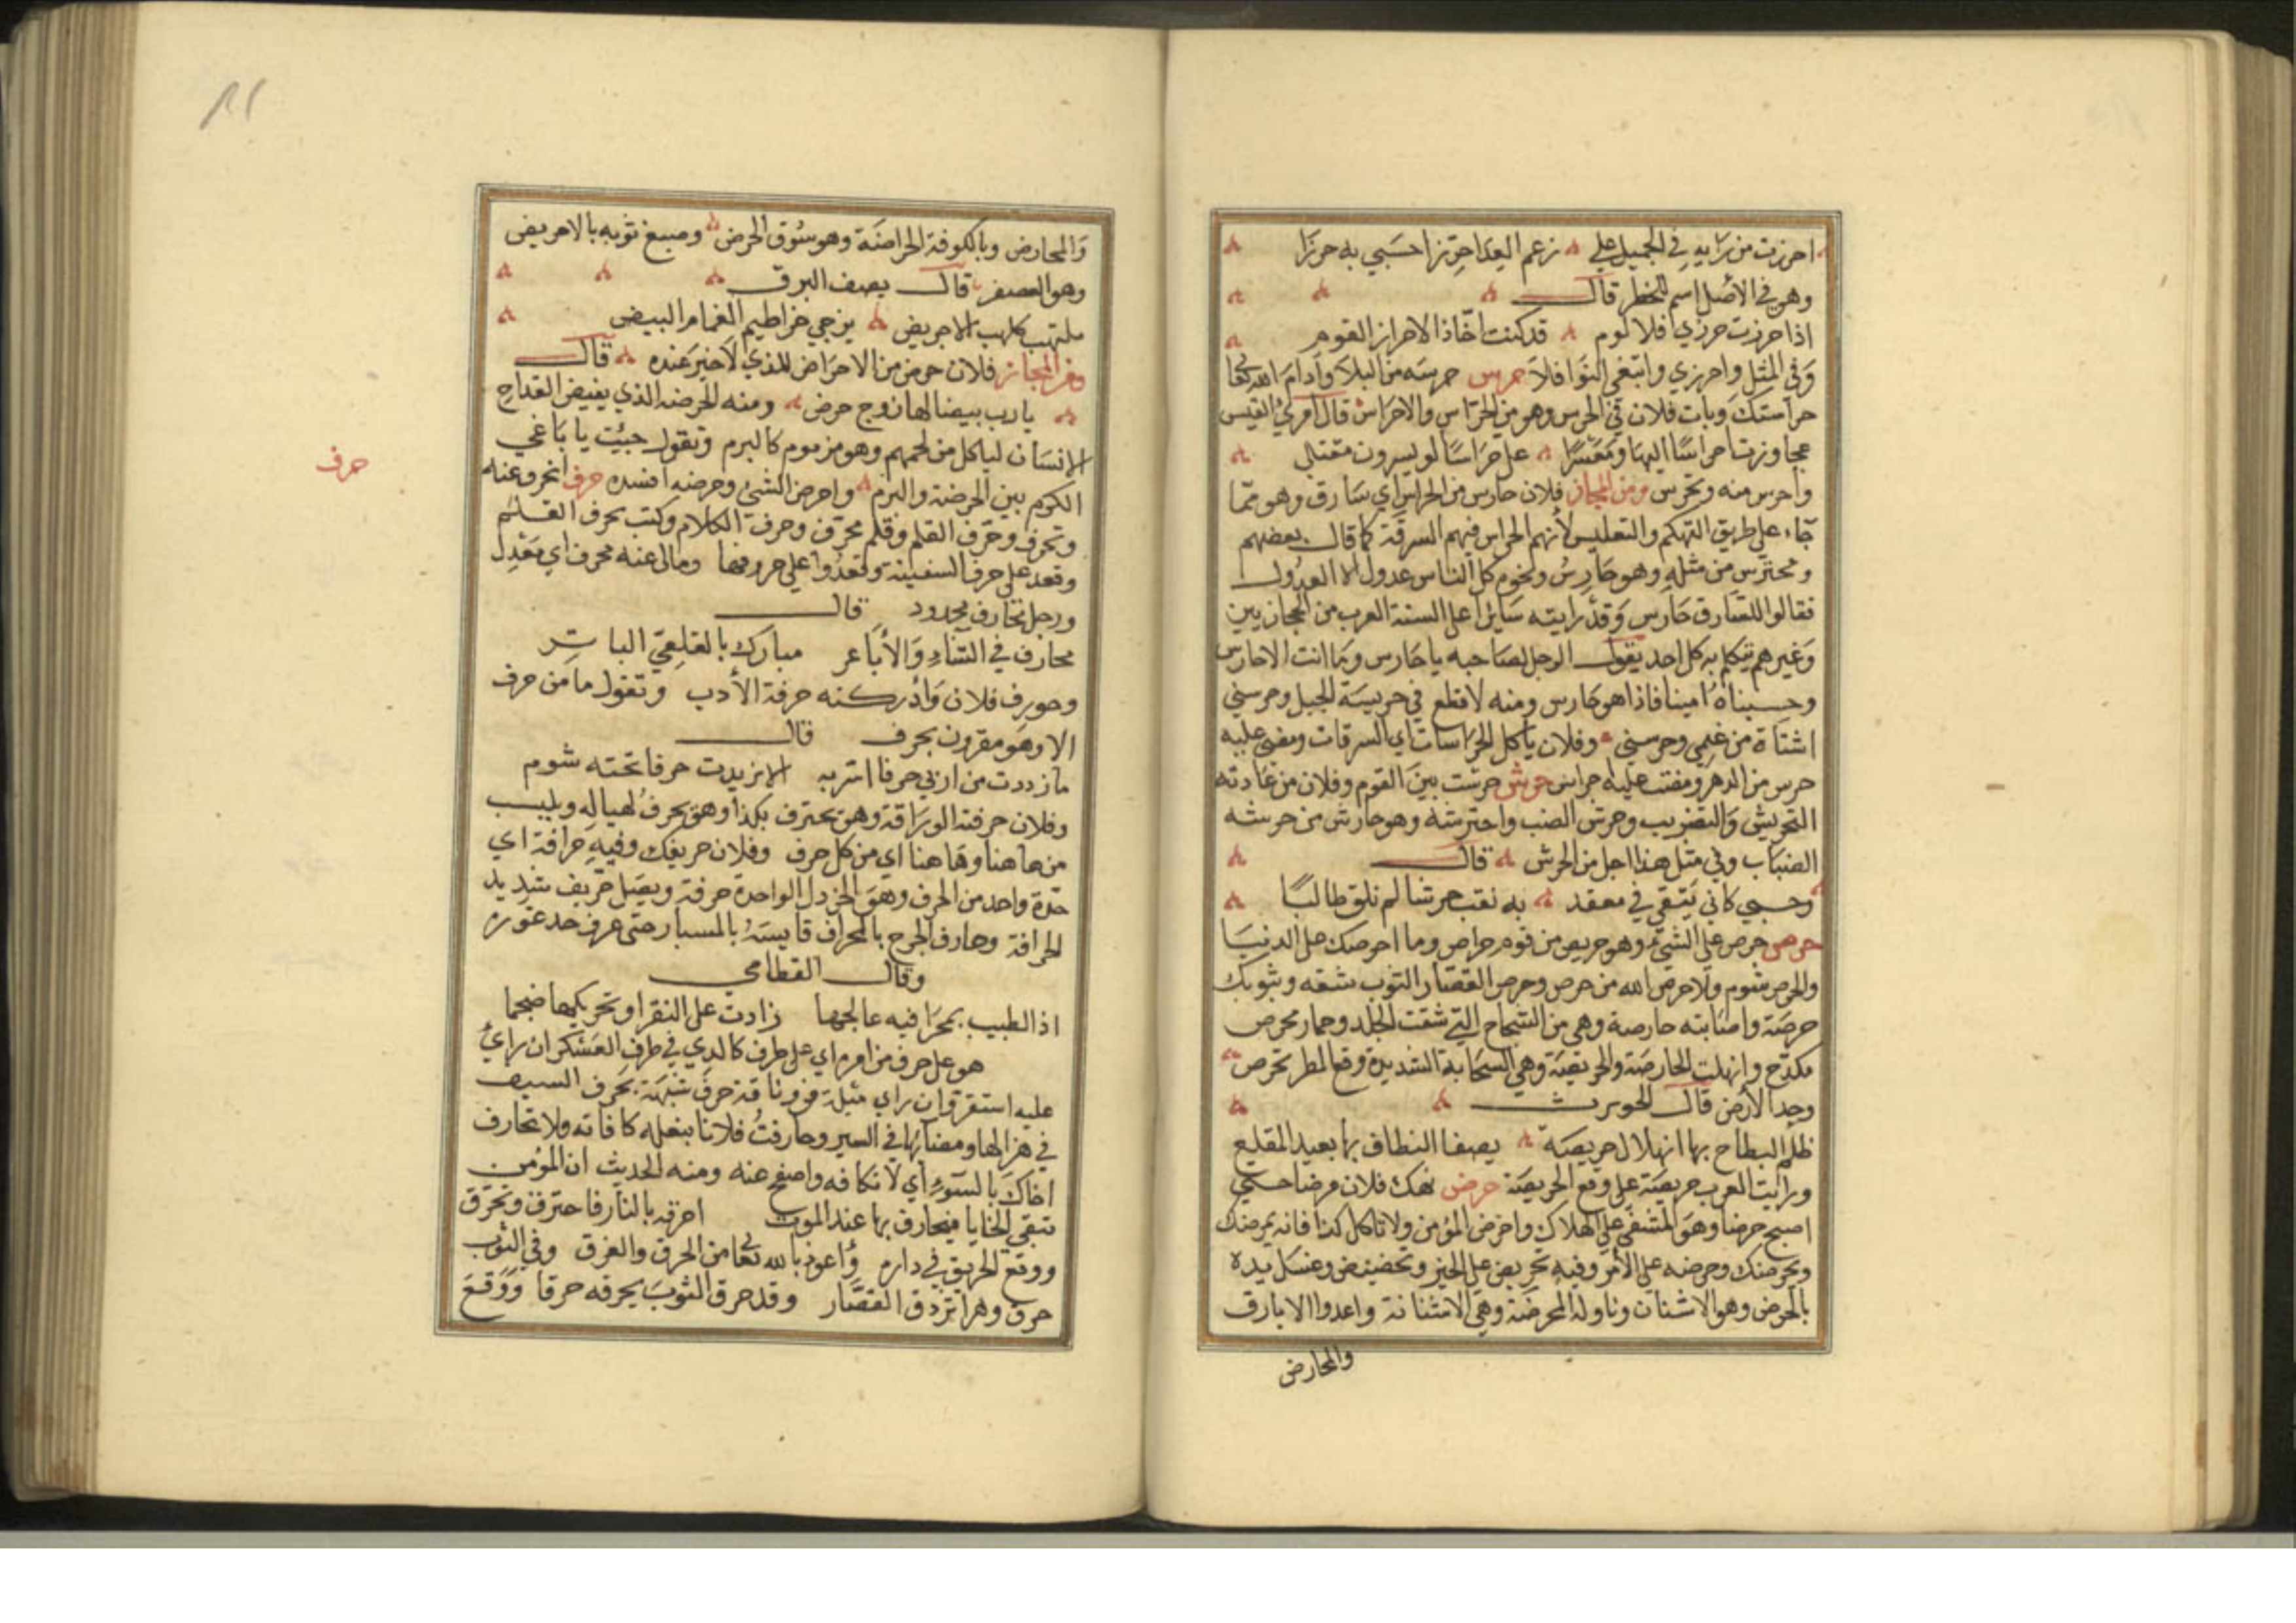 احرزت من رايه في الجميل علي زعم العدا حرزا حسبي به حرزا
وهو في الأصل اسم للخطر قال
اذا حرزت حرزي فلا لوم قد كنت اخاذا لاحراز القوم
وفي المثل واحرزي وابتغي النوافلا حرس حرسه من البلا وادام الله تعا
حراستك وبات فلان في الحرس وهو من الحراس والاحراس قال امرئ القيس
تجاوزت احراسا اليها ومعشرا علي حراسا لو يسرون مقتلي
واحرس منه وتحرس ومن المجاز فلان حارس من الحراس اي سارق وهو مما
جاء علي طريق التهكم والتعليس لأنهم الحراس فيهم السرقة كما قال بعضهم
ومحترس من مثله وهو حارس ونحوه كل الناس عدول الا العدول
فقالوا للسارق حارس وقد رايته سائرا علي السنة العرب من الحجاز بين
وغيرهم يتكلم به كل احد يقول الرجل لصاحبه يا حارس وما انت الاحارس
وحسبناه امينا فاذا هو حارس ومنه لا قطع في حريسة الجبل وحرسني
اشتاة من غنمي وحرسني وفلان ياكل الحراسات اي السرقات ومضي عليه
حرس من الدهر ومضت عليه حراس حرش حرشت بين القوم وفلان من عادته
التحريش والتضريب وحرش الضب واحترشه وهو حارش من حرشه
الضباب وفي مثل هذا اجل من الحرش قال
وحسبي كاني يتقي في معقد به نقب حرشا لم نلق طالبا
حرص حرص علي الشيء وهو حريص من قوم حراص وما احرصك علي الدنيا
والحرص شوم ولا حرص الله من حرص وحرص القصار الثوب شقه وبثوبك
حرصة واصابته حارصة وهي من الشجاج التي شقت الجلد وحمار محرص
مكدح وانهلت الحارصة والحريصة وهي السحابة الشديدة وقع المطر تحرص
وجد الأرض قال الحويرث
ظلم البطاح بها انهلال حريصة يصفا النطاف بها بعيد المقلع
ورايت العرب حريصة علي وقع الحريصة حرض نهك فلان مرضا حتي
اصبح حرضا وهو المشفي علي الهلاك واحرض المؤمن ولا تاكل كذا فانه يمرضك
ويحرضك وحرضه علي الأمر وفيه تحريض علي الخير وتحضيض وغسل يده
بالحرض وهو الاشنان وناوله المحرضة وهي الاشنانة واعدوا الابارق
والمحارض
والمحارض وبالكوفة الحراضة وهو سوق الحرض وصبغ ثوبه بالاحريض
وهو العصفر قال يصف البرق
ملتهب كلهب الاحريض يزجي خراطيم الغمام البيض
ومن المجاز فلان حرض من الاحراض للذي لا خير عنده قال
يارب بيضا لها زوج حرض ومنه للحرضة الذي يفيض القداح
الانسان لياكل من لحمهم وهو مزموم كالبرم وتقول جبئت يا باغي
الكوم بين الحرضة والبرم واحرض الشيء وحرضه افسده حرف انحرف عنه
حرف
وتحرف وحرف القلم وقلم محرف وحرف الكلام وكتب بحرف القلم
وقعد علي حرف السفينة وقعدوا علي حروفها ومالى عنه محرف اي معدل
ورجل محارف محدود قال
محارف في الشاء والأباعر مبارك بالقلعي الباتر
وحورف فلان وادركته حرفة الأدب وتقول ما من حرف
الا وهو مقرون بحرف قال
ما زددت من ادبي حرفا اسر به الا تزيدت حرفا تحته شوم
وفلان حرفته الوراقة وهو يحترف بكذا وهو يحرف لعياله ويلبسب
من هاهنا وهاهنا اي من كل حرف وفلان حريفك وفيه حرافة اي
حدة واحد من الحرف وهو الخردل الواحدة حرفة وبصل حريف شديد
الحرافة وحارف الجرح بالمحراف قايسه بالمسبار حتي عرف حد غوره
وقال القطامي
اذا الطبيب بمحرافيه عالجها زادت علي النقر او تحريكها ضجما
هو علي حرف من امره اي علي طرف كالذي في طرف العسكر ان راي
عليه استقر وان راي ميلة فر وناقة حرف شبهة بحرف السيف
في هزالها ومضائها في السير وحارفت فلانا بفعله كافاته ولا تحارف
اخاك بالسوء اي لا تكافه واصفح عنه ومنه الحديث ان المؤمن
تبقي الخطايا فيحارف بها عند الموت احرقه بالنار فاحترق وتحرق
ووقع الحريق في داره وأعوذ بالله تعا من الحرق والغرق وفي الثوب
حرق وهو اثر دق القصار وقد حرق الثوب يحرقه حرقا ووقع